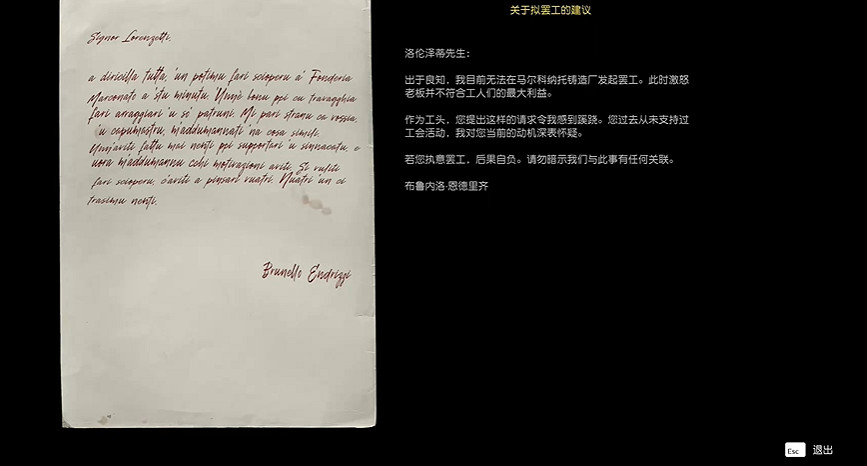 Signor Lorenzetti,
a diricilla tutta, 'un potimu fari scioperu a' Fonderia
Marconato a 'stu minutu. 'Unn'è bonu ppi cu travagghia
fari arraggiari 'u si' patruni. Mi pari stranu ca vossia,
'u capumastru, m'addumannati 'na cosa simili.
'Unn'aviti fattu mai nenti ppi suppurtari 'u sinnacatu, e
uora m'addumannu cchi motivazioni aviti. Si vuliti
fari scioperu, c'aviti a pinsari vuatri. Nuatri 'un ci
trasimu nenti.
Brunello Endrizzi
关于拟罢工的建议
洛伦泽蒂先生：
出于良知，我目前无法在马尔科纳托铸造厂发起罢工。此时激怒
老板并不符合工人们的最大利益。
作为工头，您提出这样的请求令我感到蹊跷。您过去从未支持过
工会活动，我对您当前的动机深表怀疑。
若您执意罢工，后果自负。请勿暗示我们与此事有任何关联。
布鲁内洛·恩德里齐
Esc 退出